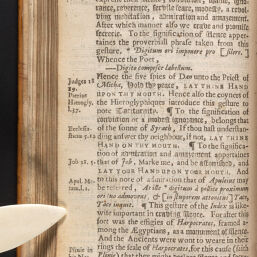 rance, reverence, servile feare, modesty, a revol-
ving meditation, admiration and amazement.
After which manner also we crave and promise
secrecie. To the signification of silence apper-
taines the proverbiall phrase taken from this
gesture, * Digitum ori imponere pro [silere.]
Whence the Poet,
—Digito compesce labellum.
Judges 18
19.
Hence the five spies of Dan unto the Priest of
Micha, Hold thy peace, LAY THINE HAND
Pierius
Hierogly.
l. 37.
UPON THY MOUTH. Hence also the coyners of
the Hieroglyphiques introduce this gesture to
note Taciturnitie. ¶ To the signification of
conviction or a modest ignorance, belongs that
Ecclesia-
sticus 5.12
of the sonne of Syrach, if thou hast understan-
ding answer thy neighbour, if not, LAY THINE
HAND ON THY MOUTH. ¶ To the significa-
tion of admiration and amazement appertaines
Job 21. 5.
that of Job, Marke me, and be astonished, and
LAY YOUR HAND UPON YOUR MOUTH. And
to this note of admiration that of Apuleius may
be referred, At ille * digitum à pollice proximum
ori suo admovens, & [in stuporem attonitus] Tace,
Tace inquit. ¶ This gesture of the Index is like-
wise important in craving silence. For after this
sort was the effigies of Harpocrates, framed a-
mong the Ægyptians, as a monument of silence.
And the Ancients were wont to weare in their
Plinie in
rings the seale of Harpocrates, for this cause (saith